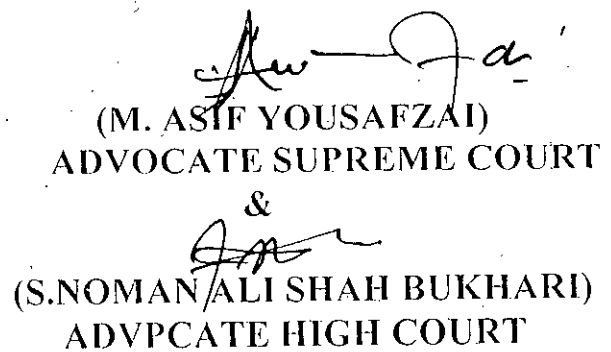 (M. ASIF YOUSAFZAI)
ADVOCATE SUPREME COURT
&
(S.NOMAN ALI SHAH BUKHARI)
ADVPCATE HIGH COURT